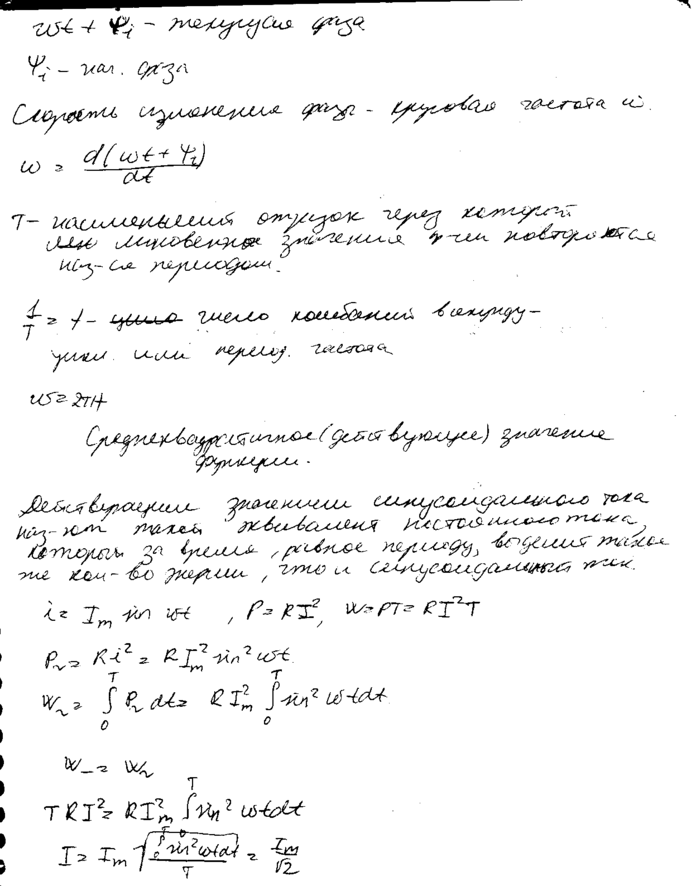 ωt + Ψi – текущая фаза
Ψi – нач. фаза
Скорость изменения фазы – круговая частота ω.
ω = d(ωt + Ψi)/dt
T – наименьший отрезок через который
мгновенные значения ф-ции повторяются
наз-ся периодом.
1/T = f – число колебаний в секунду –
цикл. или период. частота
ω = 2πf
Среднеквадратичное (действующее) значение
функции.
Действующим значением синусоидального тока
наз-ют такой эквивалент постоянного тока,
которым за время, равное периоду, выделит такое
же кол-во энергии, что и синусоидальный ток.
i = Im sin ωt , P = RI², W = PT = RI²T
P~ = Ri² = RIm² sin² ωt
W~ = ∫₀ᵀ P~ dt = RIm² ∫₀ᵀ sin² ωtdt
W– = W~
TRI² = RIm² ∫₀ᵀ sin² ωtdt
I = Im √(∫₀ᵀ sin² ωtdt / T) = Im/√2